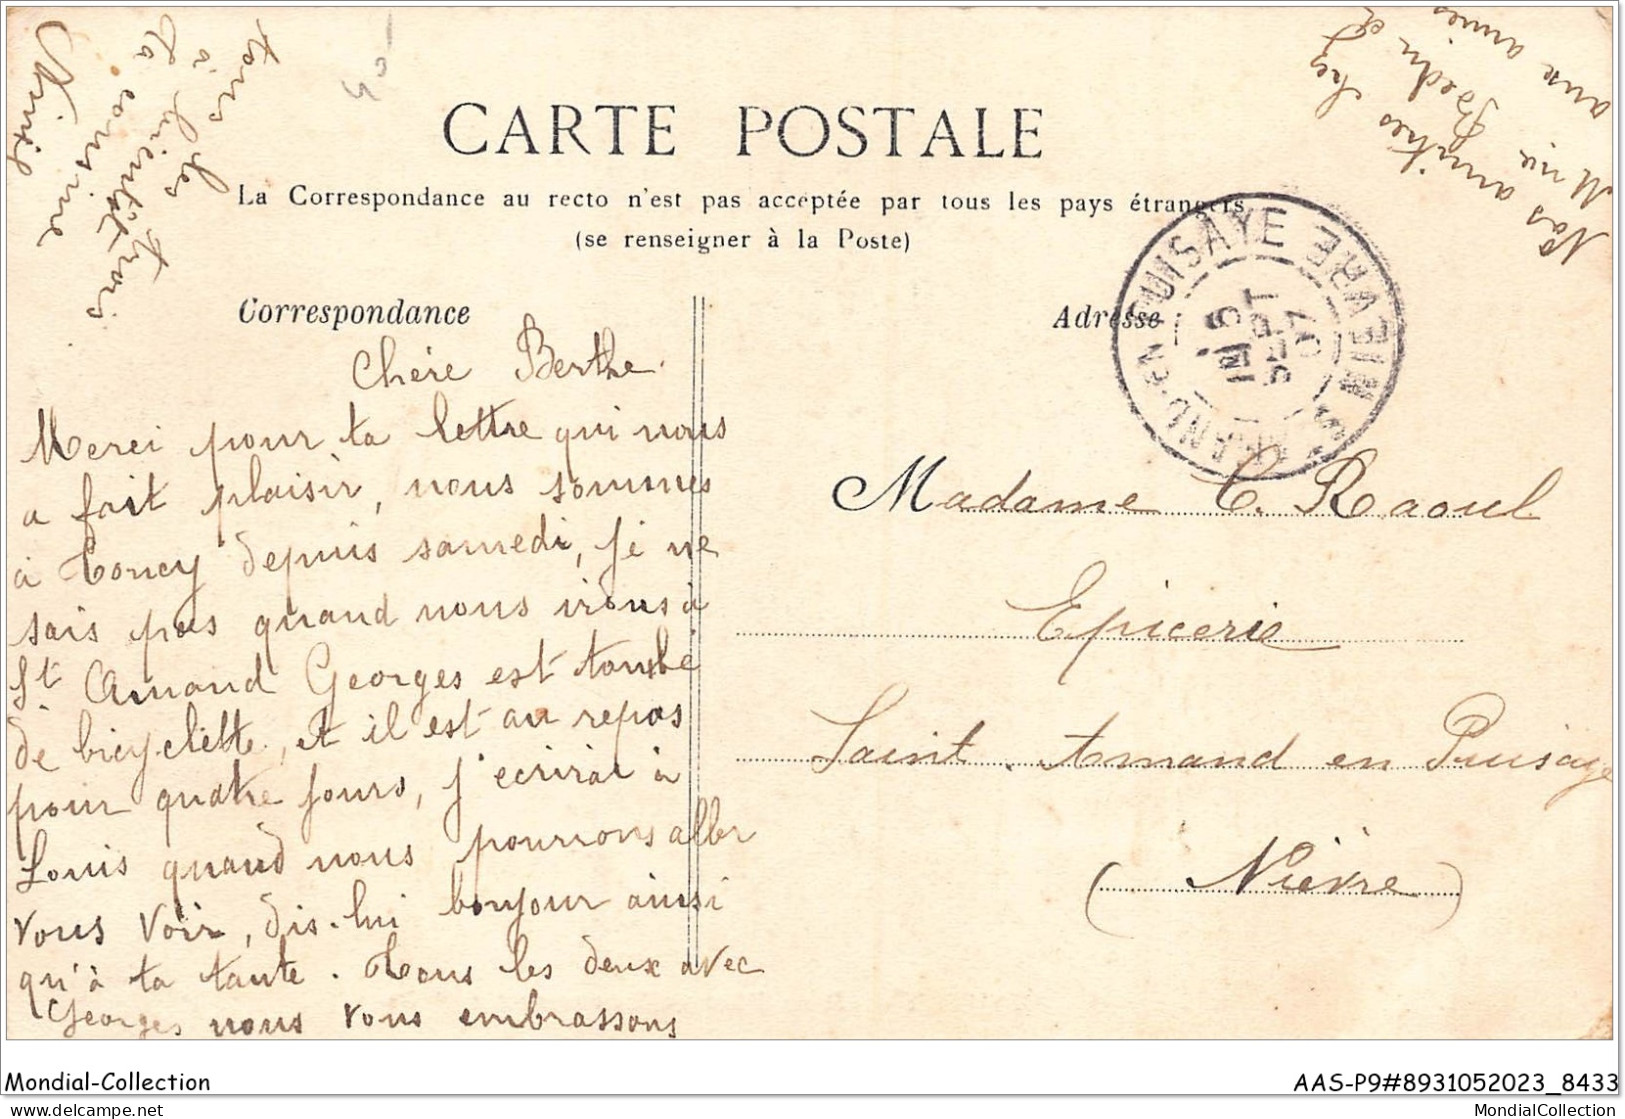 CARTE POSTALE
La Correspondance au recto n'est pas acceptée par tous les pays étrangers
(se renseigner à la Poste)
Correspondance
Adresse
Chère Berthe.
Merci pour ta lettre qui nous
a fait plaisir, nous sommes
à Toucy depuis samedi, je ne
sais pas quand nous irons à
St Amand Georges est tombé
de bicyclette, et il est au repos
pour quatre jours, j'écrirai à
Louis quand nous pourrons aller
vous voir, dis-lui bonjour ainsi
qu'à ta tante. Tous les deux avec
Georges nous vous embrassons
tous les trois
à bientôt
Ta cousine
Nos amitiés chez
Mme
aux amies
Madame C. Raoul
Epicerie
Saint-Amand en Puisaye
(Nièvre)
ST AMAND-EN-PUISAYE NIEVRE
5
SEPT
07
Mondial-Collection
AAS-P9#8931052023_8433
delcampe.net
MondialCollection